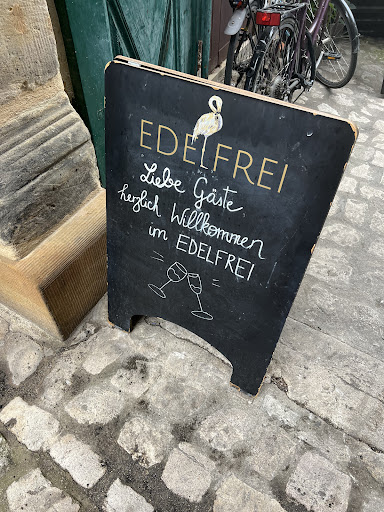 EDELFREI
Liebe Gäste,
herzlich Willkommen
im EDELFREI!